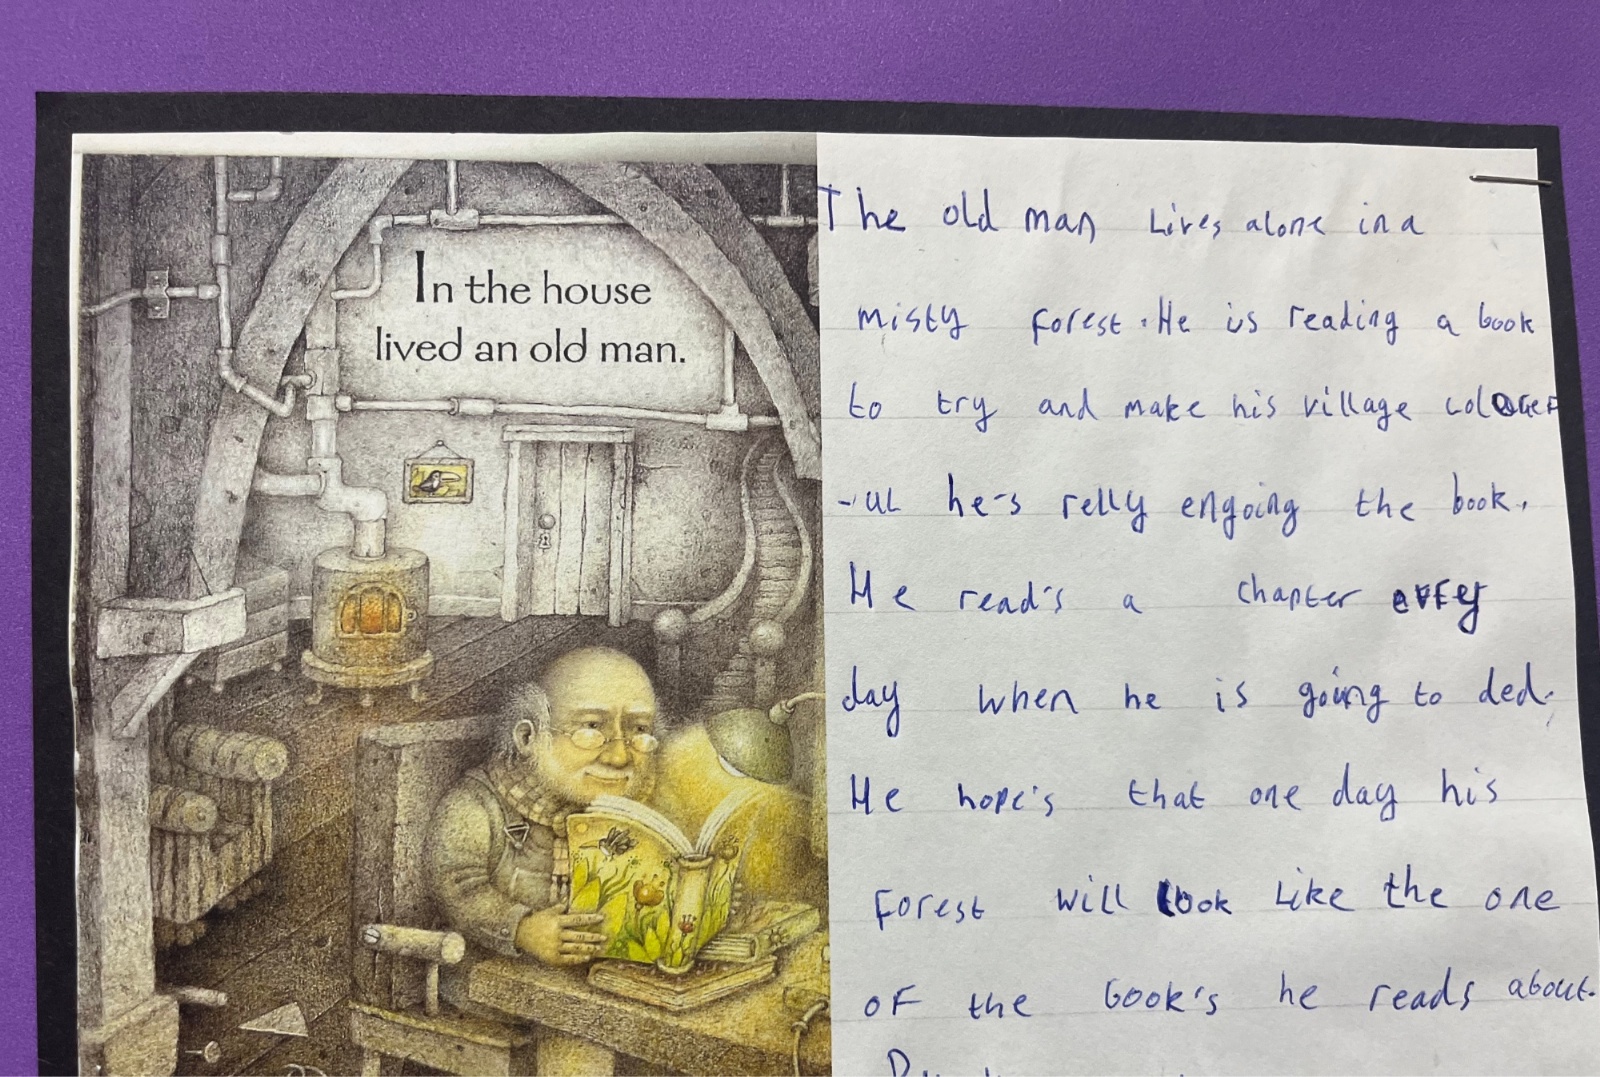 In the house
lived an old man.
The old man Lives alone in a
misty forest. He is reading a book
to try and make his village colouerf
-ul he's relly engoing the book.
He read's a chapter every
day when he is going to ded.
He hope's that one day his
forest will look Like the one
of the book's he reads about.